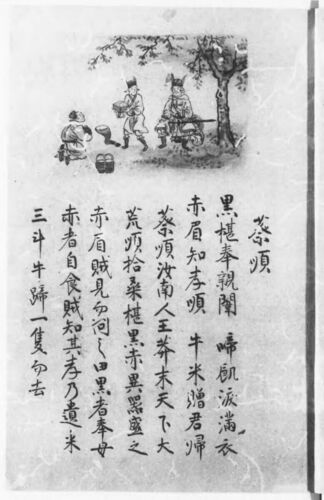 蔡順
黑椹奉親闈　啼飢淚滿衣
赤眉知孝順　牛米贈君帰
蔡順汝南人王莽末天下大
荒順拾桑椹黑赤異器盛之
赤眉賊見而问之曰黑者奉母
赤者自食賊知其孝乃遺米
三斗牛蹄一隻而去